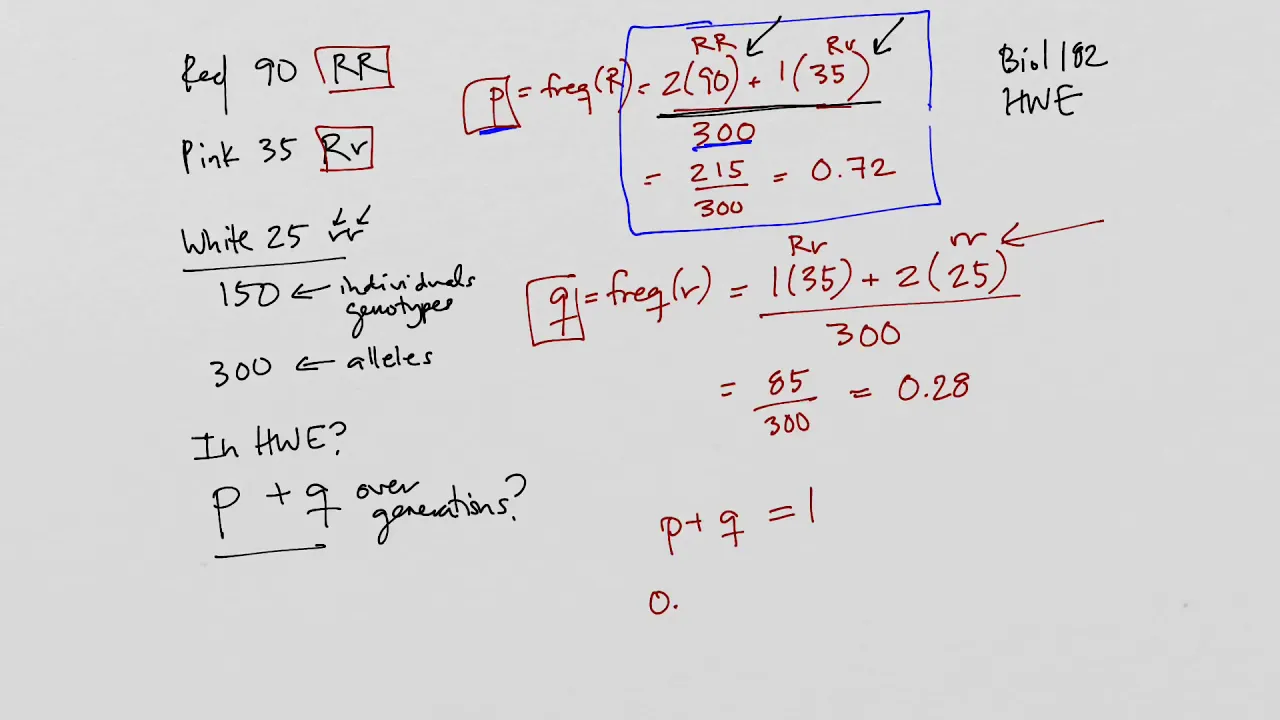 Red 90 RR
Pink 35 Rr
White 25 rr
150 ← individuals
genotypes
300 ← alleles
In HWE?
p + q over
generations?
RR Rr
p = freq(R) = 2(90) + 1(35)
300
= 215 = 0.72
300
Rr rr
q = freq(r) = 1(35) + 2(25)
300
= 85 = 0.28
300
p + q = 1
0.
Biol 182
HWE